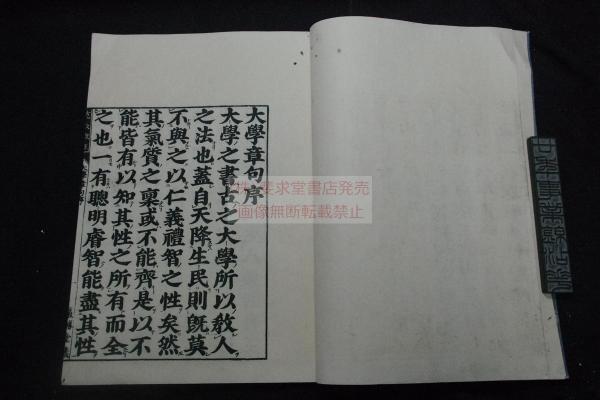 大學章句序
大學之書古之大學所以敎人
之法也蓋自天降生民則旣莫
不與之以仁義禮智之性矣然
其氣質之稟或不能齊是以不
能皆有以知其性之所有而全
之也一有聰明睿智能盡其性
㈱求堂書店発売
画像無断転載禁止